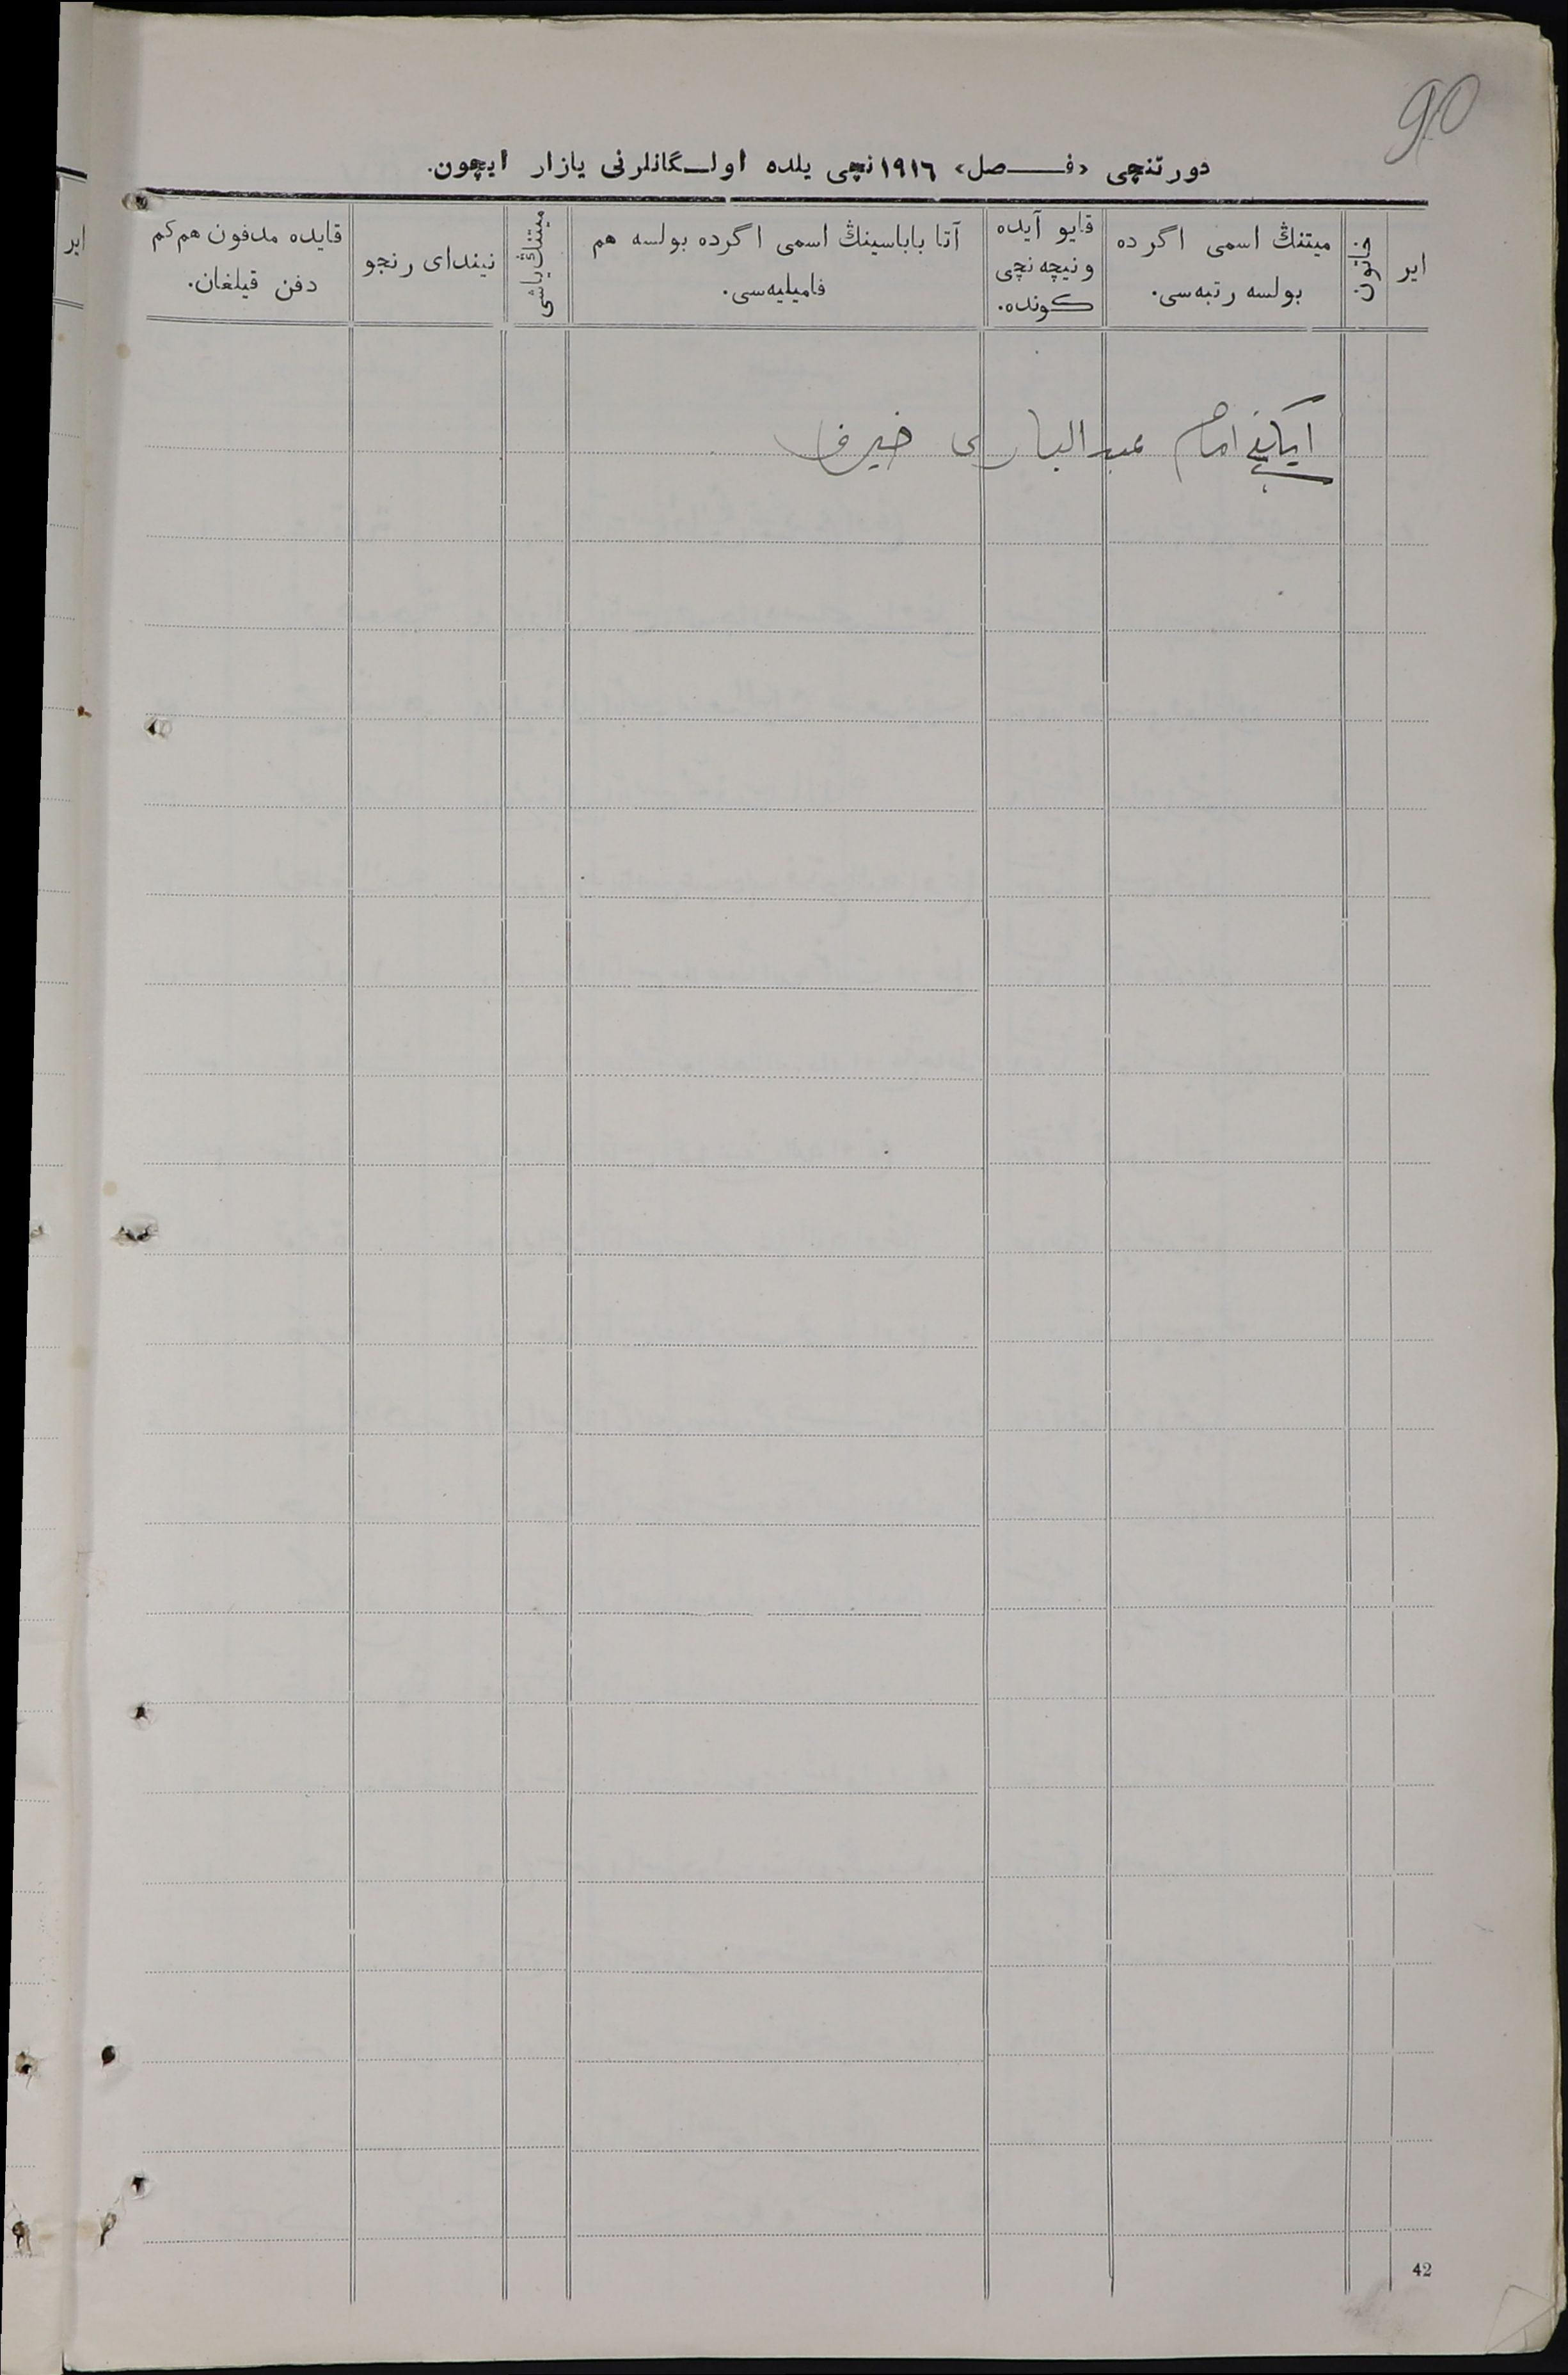 90
دورتنچی «فـــصل» ١٩١٦نچی یلده اولـگانلرنی یازار ایچون.
ایر
خاتون
میتنڭ اسمی اگرده
بولسه رتبه‌سی.
قایو آیده
ونیچه‌نچی
کونده.
آتا باباسینڭ اسمی اگرده بولسه هم
فامیلیه‌سی.
میتنڭ یاشی
نیندای رنجو
قایده مدفون هم‌کم
دفن قیلغان.
ایر
امام عبدالباری
42